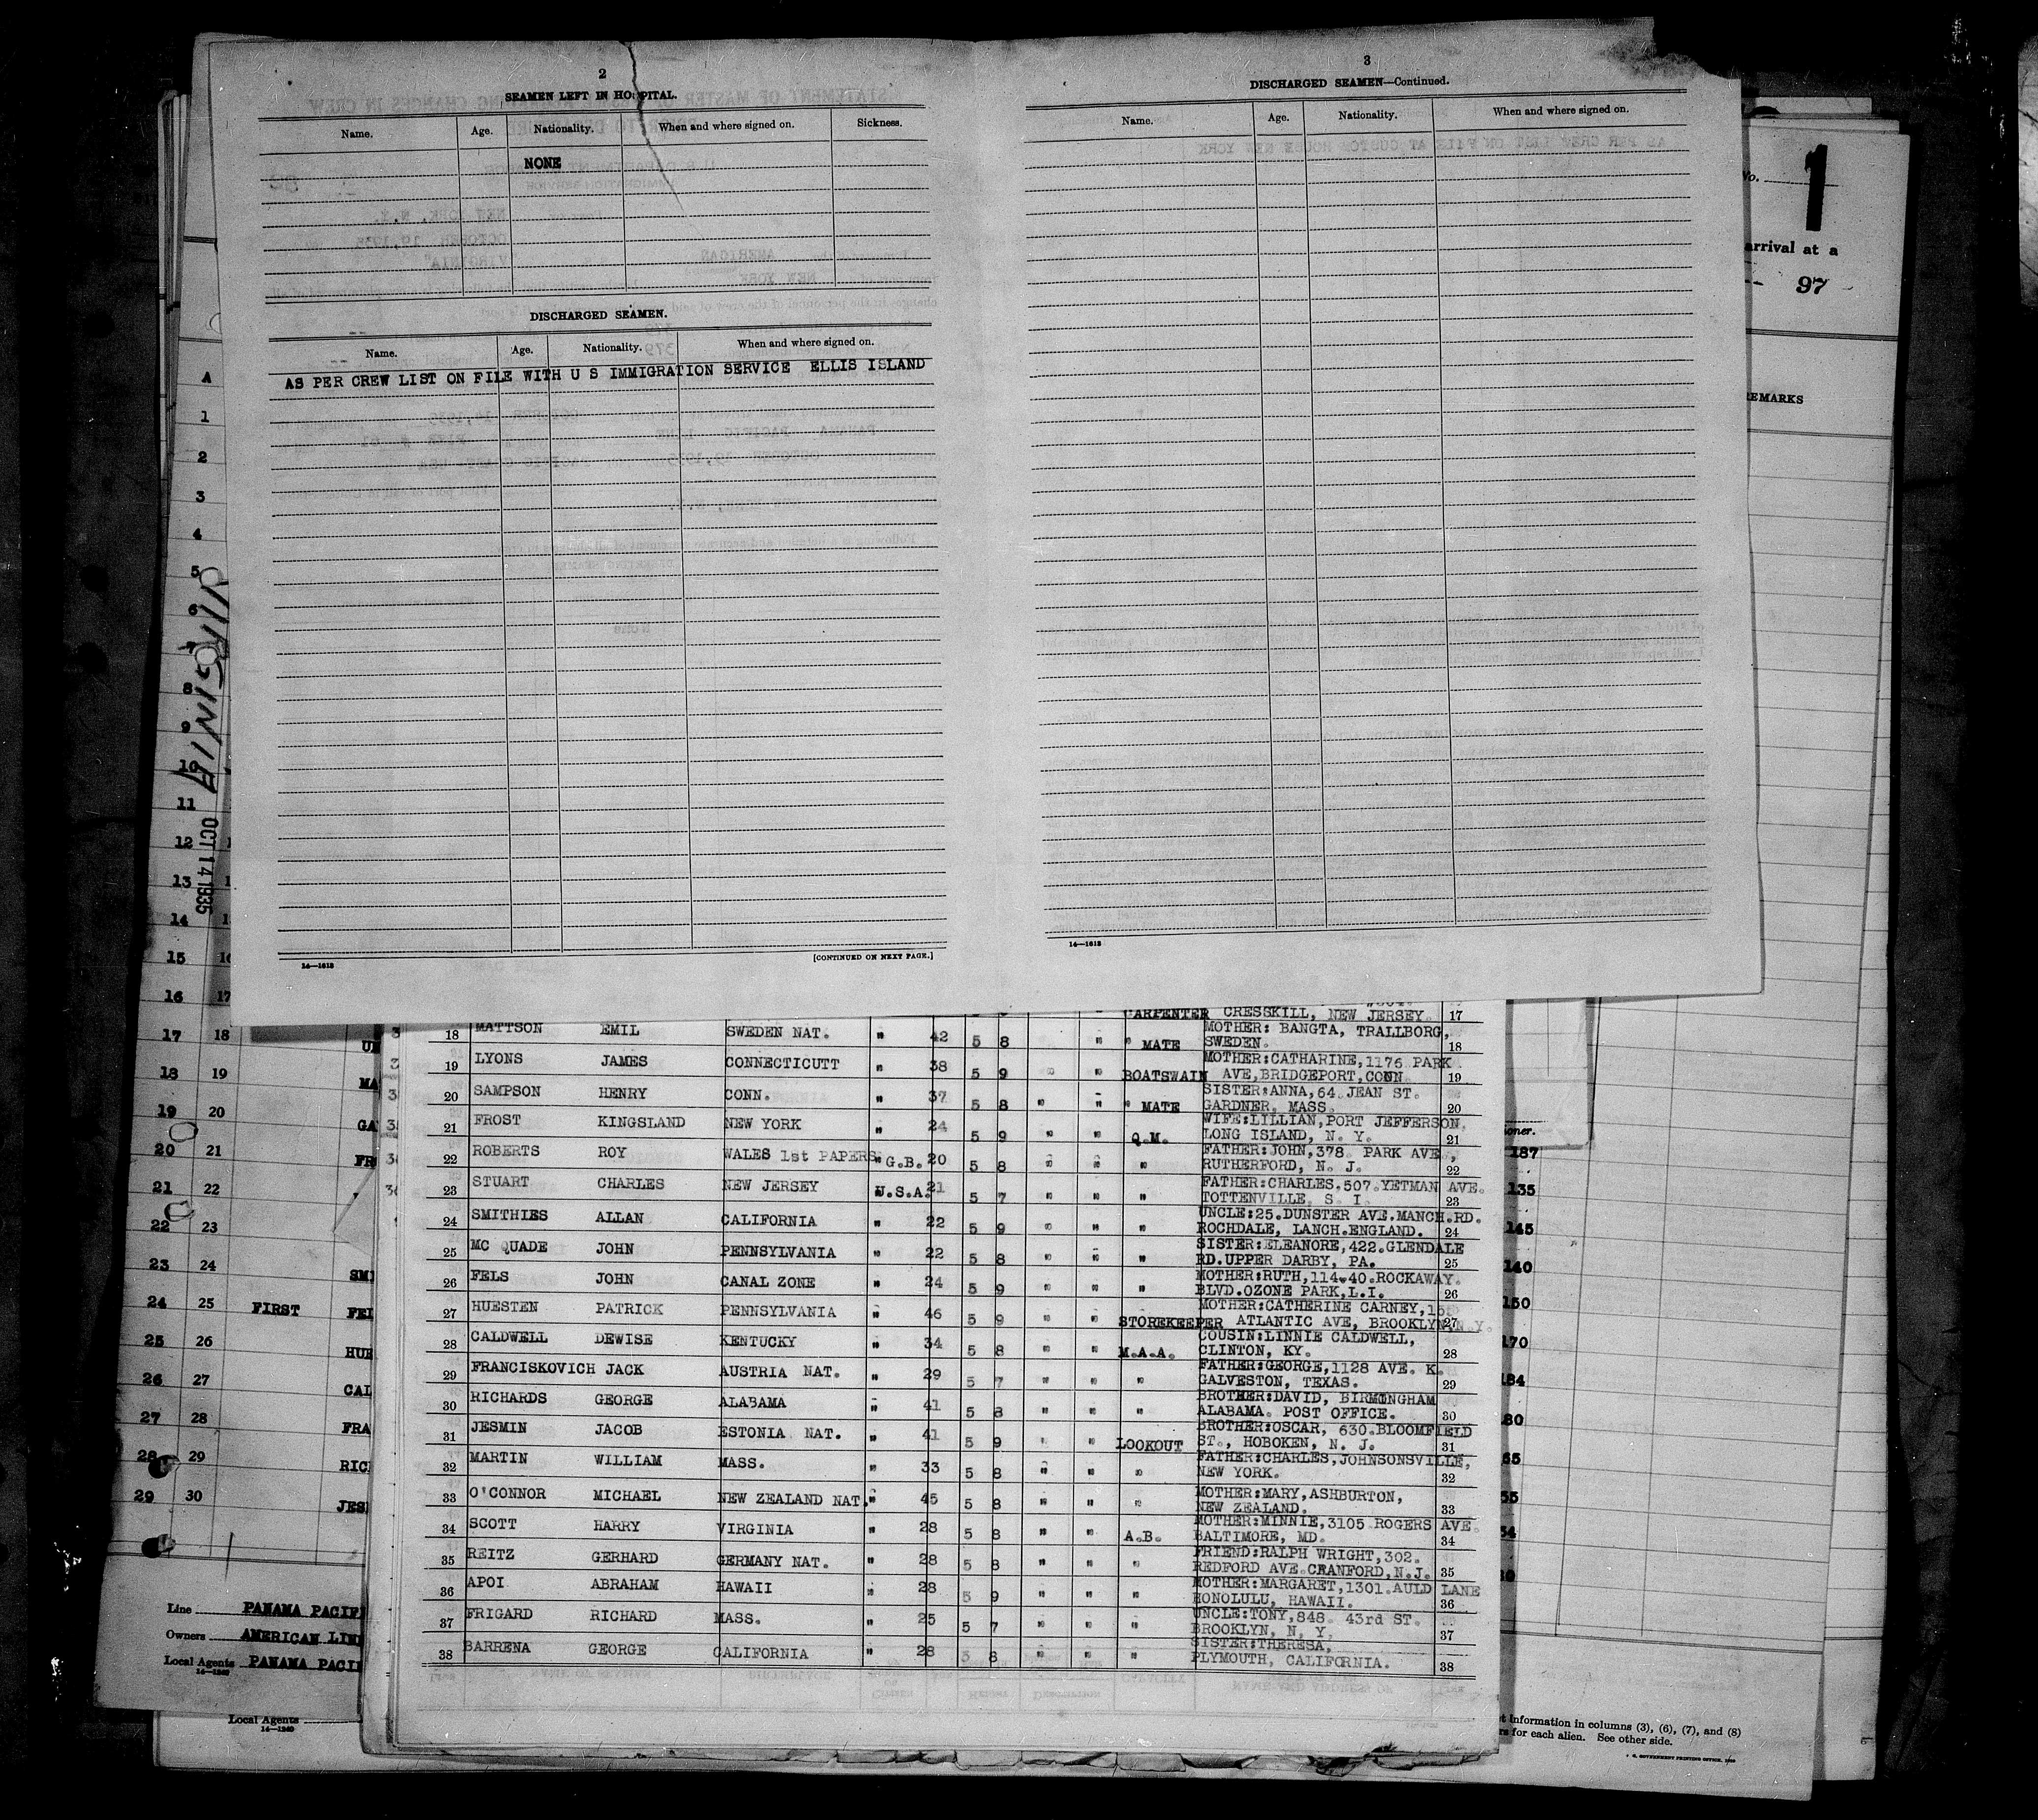 2
SEAMEN LEFT IN HOSPITAL.
Name. Age. Nationality. When and where signed on. Sickness.
NONE
DISCHARGED SEAMEN.
Name. Age. Nationality. When and where signed on.
AS PER CREW LIST ON FILE WITH U S IMMIGRATION SERVICE ELLIS ISLAND
14—1613
[CONTINUED ON NEXT PAGE.]
3
DISCHARGED SEAMEN—Continued.
Name. Age. Nationality. When and where signed on.
14—1613
No.
1
arrival at a
97
REMARKS
A
1
2
3
4
5
6
7
8
9
10
11
12
13
14
15
16 17
17 18
18 19
19 20
20 21
21 22
22 23
23 24
24 25 FIRST
25 26
26 27
27 28
28 29
29 30
VIRGINIA
OCT 14 1935
CARPENTER CRESSKILL, NEW JERSEY. 17
18 MATTSON EMIL SWEDEN NAT. " 42 5 8 " " MATE MOTHER: BANGTA, TRALLBORG,
SWEDEN. 18
19 LYONS JAMES CONNECTICUTT " 38 5 9 " " BOATSWAIN MOTHER:CATHARINE,1176 PARK
AVE,BRIDGEPORT,CONN 19
20 SAMPSON HENRY CONN. " 37 5 8 " " " MATE SISTER:ANNA,64 JEAN ST.
GARDNER, MASS. 20
21 FROST KINGSLAND NEW YORK " 24 5 9 " " Q.M. WIFE:LILLIAN,PORT JEFFERSON,
LONG ISLAND, N. Y. 21
22 ROBERTS ROY WALES 1st PAPERS " G.B. 20 5 8 " " " FATHER:JOHN,378 PARK AVE.,
RUTHERFORD, N. J. 22
23 STUART CHARLES NEW JERSEY U.S.A. 21 5 7 " " " FATHER:CHARLES.507.YETMAN AVE.
TOTTENVILLE. S. I. 23
24 SMITHIES ALLAN CALIFORNIA " 22 5 9 " " " UNCLE:25.DUNSTER AVE.MANCH.RD.
ROCHDALE, LANCH.ENGLAND. 24
25 MC QUADE JOHN PENNSYLVANIA " 22 5 8 " " " SISTER:ELEANORE,422.GLENDALE
RD.UPPER DARBY, PA. 25
26 FELS JOHN CANAL ZONE " 24 5 9 " " " MOTHER:RUTH,114-40.ROCKAWAY.
BLVD.OZONE PARK,L.I. 26
27 HUESTEN PATRICK PENNSYLVANIA " 46 5 9 " " STOREKEEPER MOTHER:CATHERINE CARNEY,
ATLANTIC AVE, BROOKLYN,N.Y. 27
28 CALDWELL DEWISE KENTUCKY " 34 5 8 " " M.A.A. COUSIN:LINNIE CALDWELL,
CLINTON, KY. 28
29 FRANCISKOVICH JACK AUSTRIA NAT. " 29 5 7 " " " FATHER:GEORGE,1128 AVE. K.
GALVESTON, TEXAS. 29
30 RICHARDS GEORGE ALABAMA " 41 5 8 " " " BROTHER:DAVID, BIRMINGHAM
ALABAMA. POST OFFICE. 30
31 JESMIN JACOB ESTONIA NAT. " 41 5 9 " " LOOKOUT BROTHER:OSCAR, 630.BLOOMFIELD
ST., HOBOKEN, N. J. 31
32 MARTIN WILLIAM MASS. " 33 5 8 " " " FATHER:CHARLES,JOHNSONSVILLE,
NEW YORK. 32
33 O'CONNOR MICHAEL NEW ZEALAND NAT. " 45 5 8 " " " MOTHER:MARY,ASHBURTON,
NEW ZEALAND. 33
34 SCOTT HARRY VIRGINIA " 28 5 8 " " A.B. MOTHER:MINNIE,3105 ROGERS AVE.
BALTIMORE, MD. 34
35 REITZ GERHARD GERMANY NAT. " 28 5 8 " " " FRIEND:RALPH WRIGHT,302.
REDFORD AVE.CRANFORD,N.J. 35
36 APOI ABRAHAM HAWAII " 28 5 9 " " " MOTHER:MARGARET,1301.AULD LANE
HONOLULU, HAWAII. 36
37 FRIGARD RICHARD MASS. " 25 5 7 " " " UNCLE:TONY,848. 43rd ST.
BROOKLYN, N. Y. 37
38 BARRENA GEORGE CALIFORNIA " 28 5 8 " " " SISTER:THERESA,
PLYMOUTH, CALIFORNIA. 38
187
135
145
140
150
170
184
Line PANAMA PACIF
Owners AMERICAN LIN
Local Agents PANAMA PACI
14—1240
Local Agents
14—1240
information in columns (3), (6), (7), and (8)
for each alien. See other side.
GOVERNMENT PRINTING OFFICE